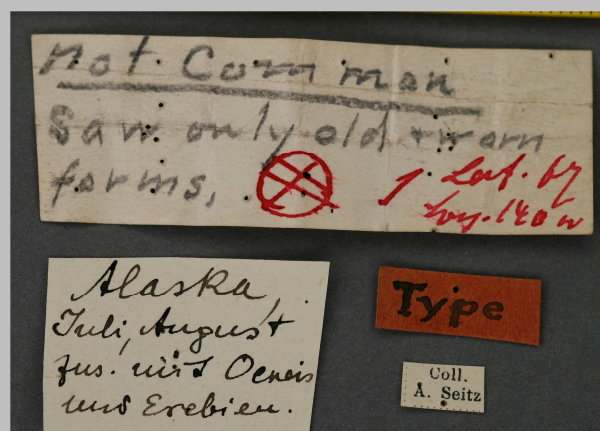 not Common
Saw only old + worn
forms,
Lat. 67
Long. 140 w
Alaska,
Juli, August
zus. mit Oeneis
und Erebien.
Type
Coll.
A. Seitz